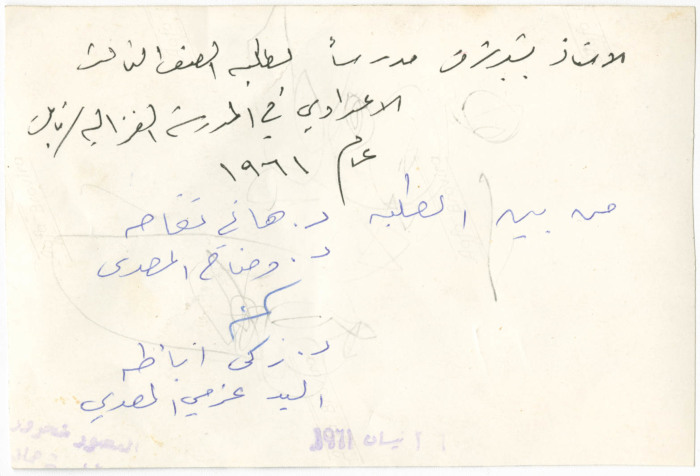 الاستاذ بشير شرف مدرساً لطلبه الصف الثالث
الاعدادي في المدرسة الغزاليه/نابلس
عام ١٩٦١
من بين الطلبه د. هاني تفاحه
د. وضاح المصري
د. زكي اباظه
السيد عزمي المصري
المصور
نيسان